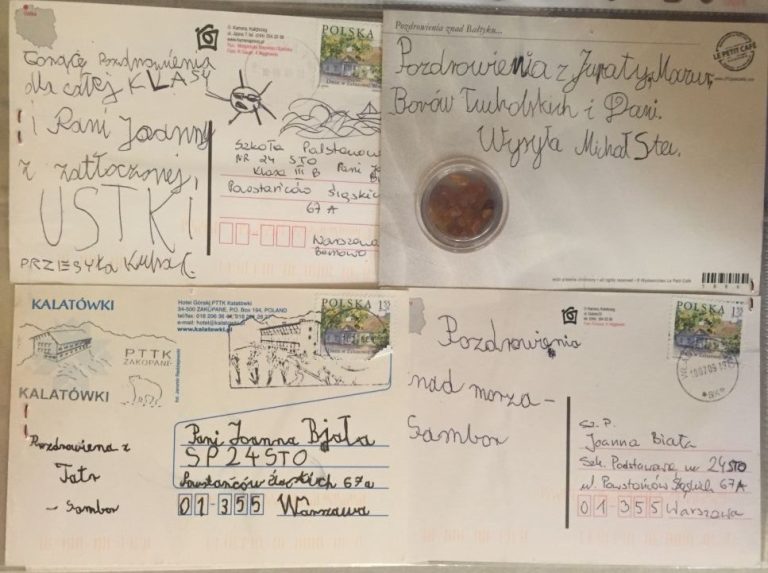 Gorące Pozdrowienia
dla całej KLASY
i Pani Joanny
z zatłoczonej,
USTKI
PRZESYŁA Kuba C.
POLSKA
Szkoła Podstawowa
NR 24 STO
Klasa III B Pani
Powstańców Śląskich
67 A
Warszawa
Bemowo
Pozdrowienia znad Bałtyku...
LE PETIT CAFÉ
Pozdrowienia z Juraty, Mazur,
Borów Tucholskich i Danii.
Wysyła Michał Ster.
KALATÓWKI
PTTK
ZAKOPANE
KALATÓWKI
Hotel Górski PTTK Kalatówki
34-500 ZAKOPANE, P.O. Box 194, POLAND
www.kalatowki.pl
POLSKA 1,30
Pozdrowienia z
Tatr
- Sambor
Pani Joanna Bjała
SP 24 STO
Powstańców Śląskich 67a
01-355 Warszawa
POLSKA 1,30
Pozdrowienia
nad morza -
Sambor
Sz. P.
Joanna Biała
Szk. Podstawowa nr 24 STO
ul Powstańców Śląskich 67A
01-355 Warszawa